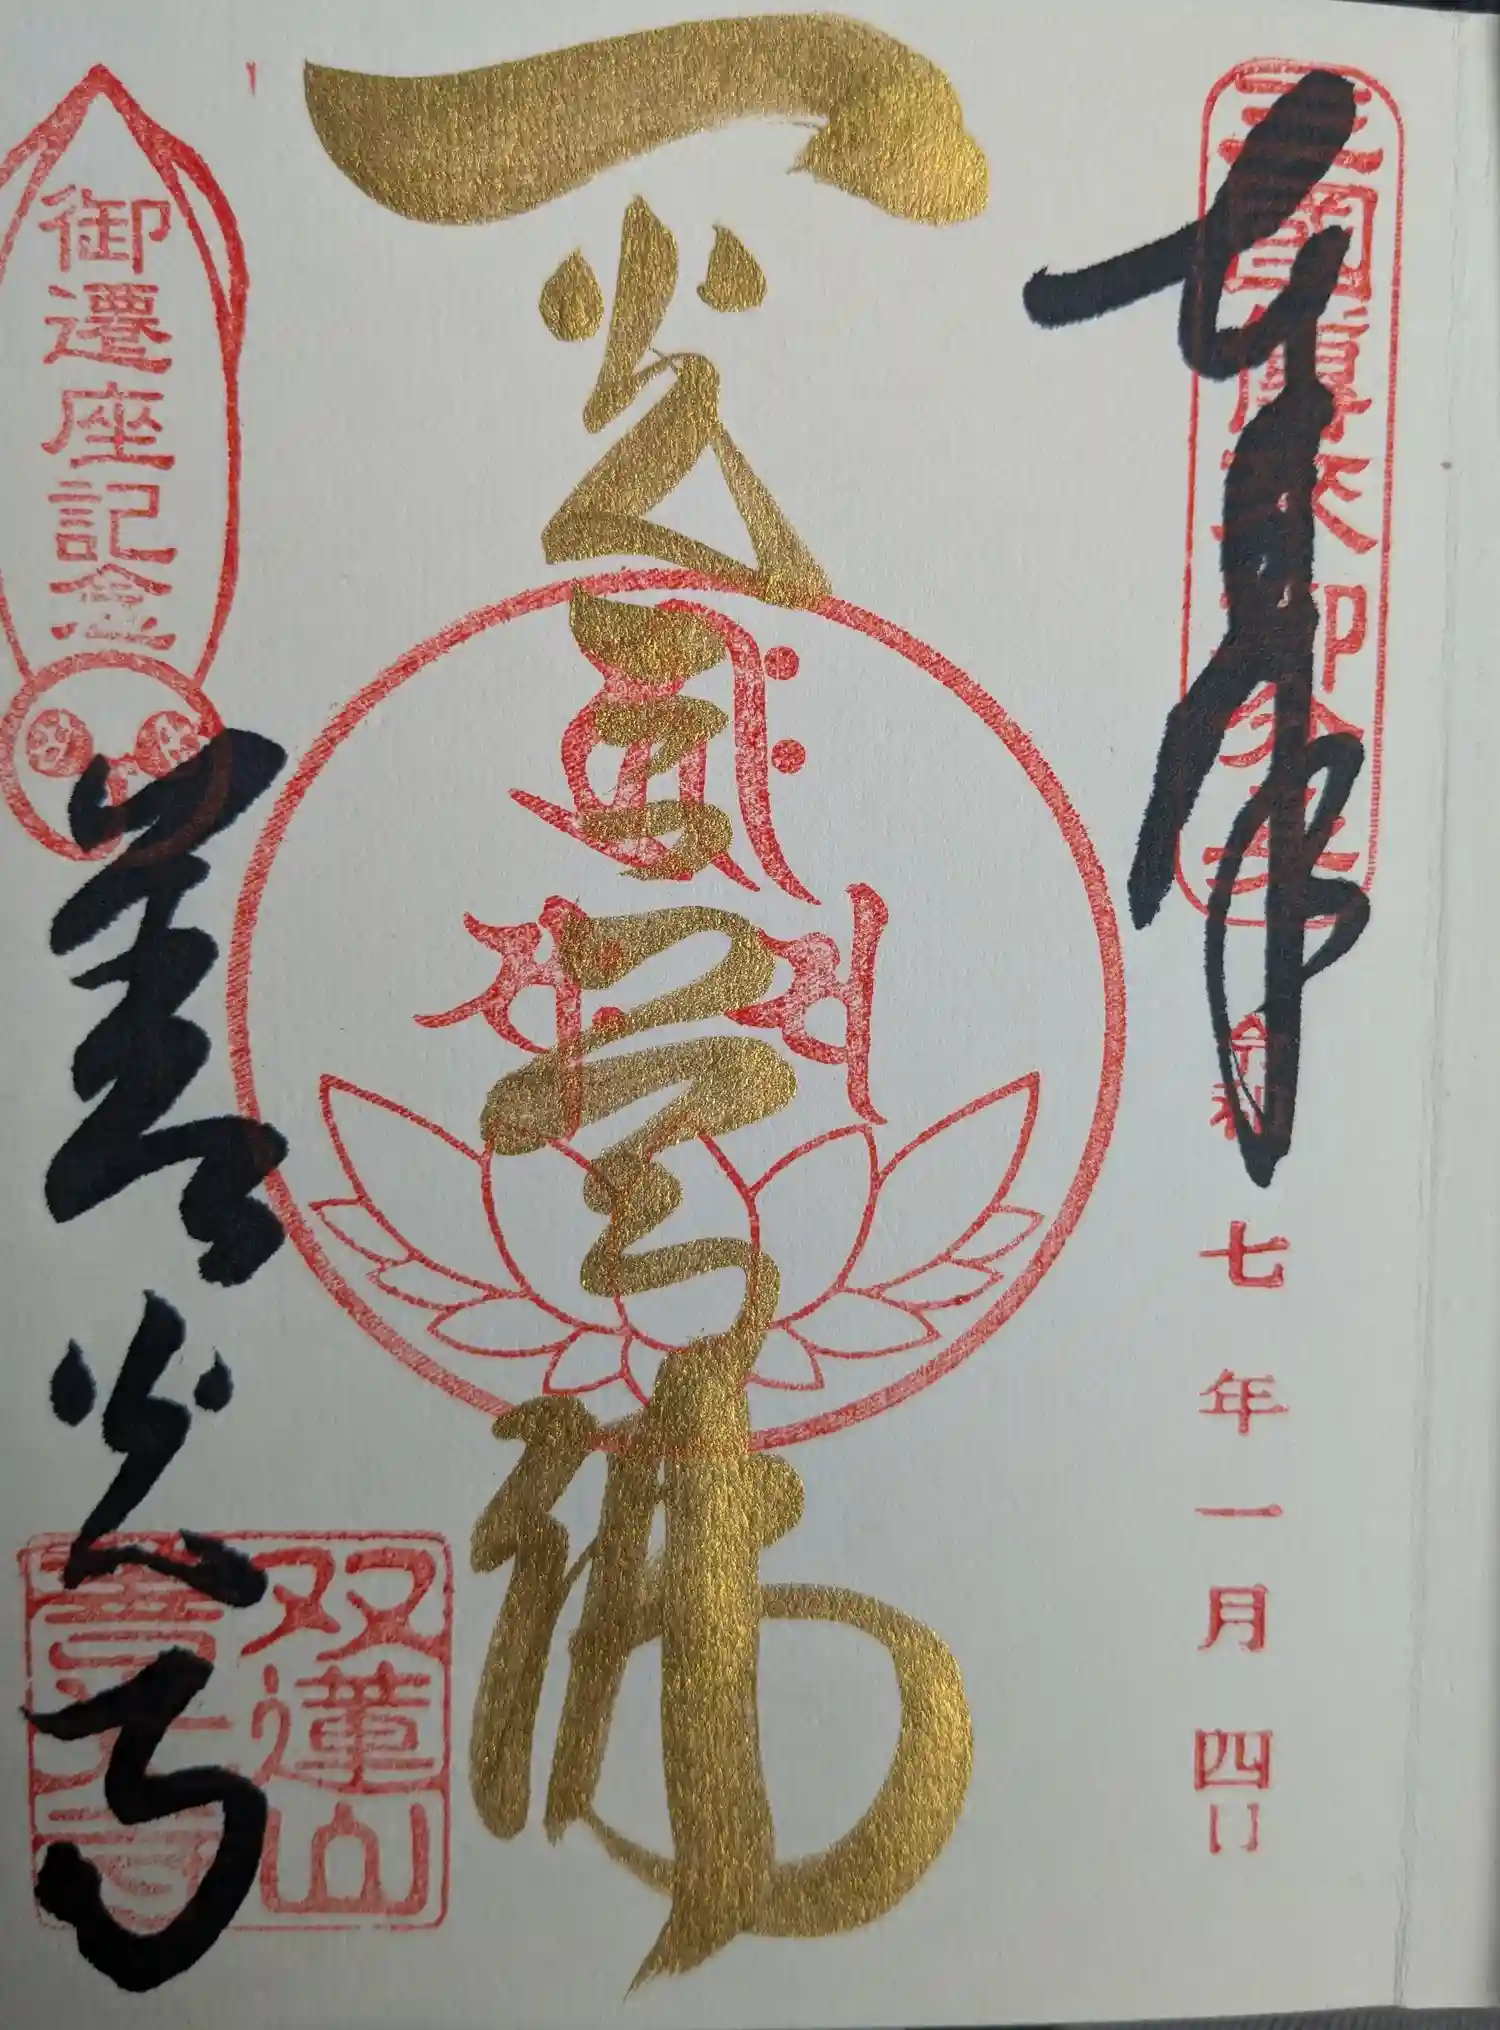 奉拝
令和七年一月四日
一光三尊佛
御遷座記念
善光寺
双蓮山
善光寺